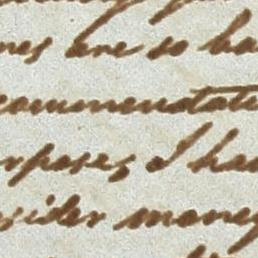 mes are so ha
commendati
rposes, I hav
sider money